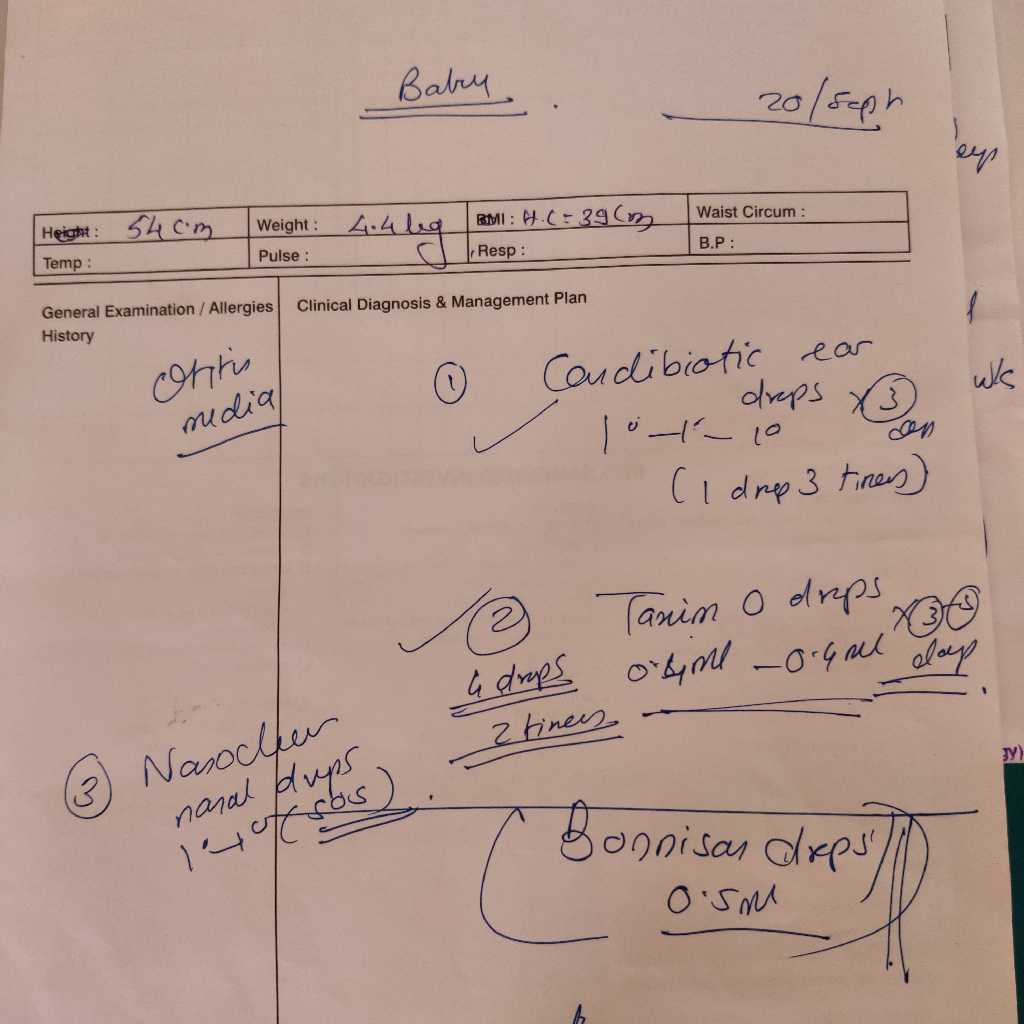 Baby
20/Sept
Height : 54 cm Weight : 4.4 kg BMI : H.C = 39 Cm Waist Circum :
Temp : Pulse : Resp : B.P :
General Examination / Allergies
History
Clinical Diagnosis & Management Plan
Otitis
media
① Candibiotic ear
drops x ③
1° — 1° — 1°
(1 drop 3 times)
② Taxim O drops x ③-⑤
4 drops 0.4ml — 0.4ml days
2 times
③ Nasoclear
nasal drops
1° — 1° (sos)
Bonnisan drops
0.5ml
days
wks